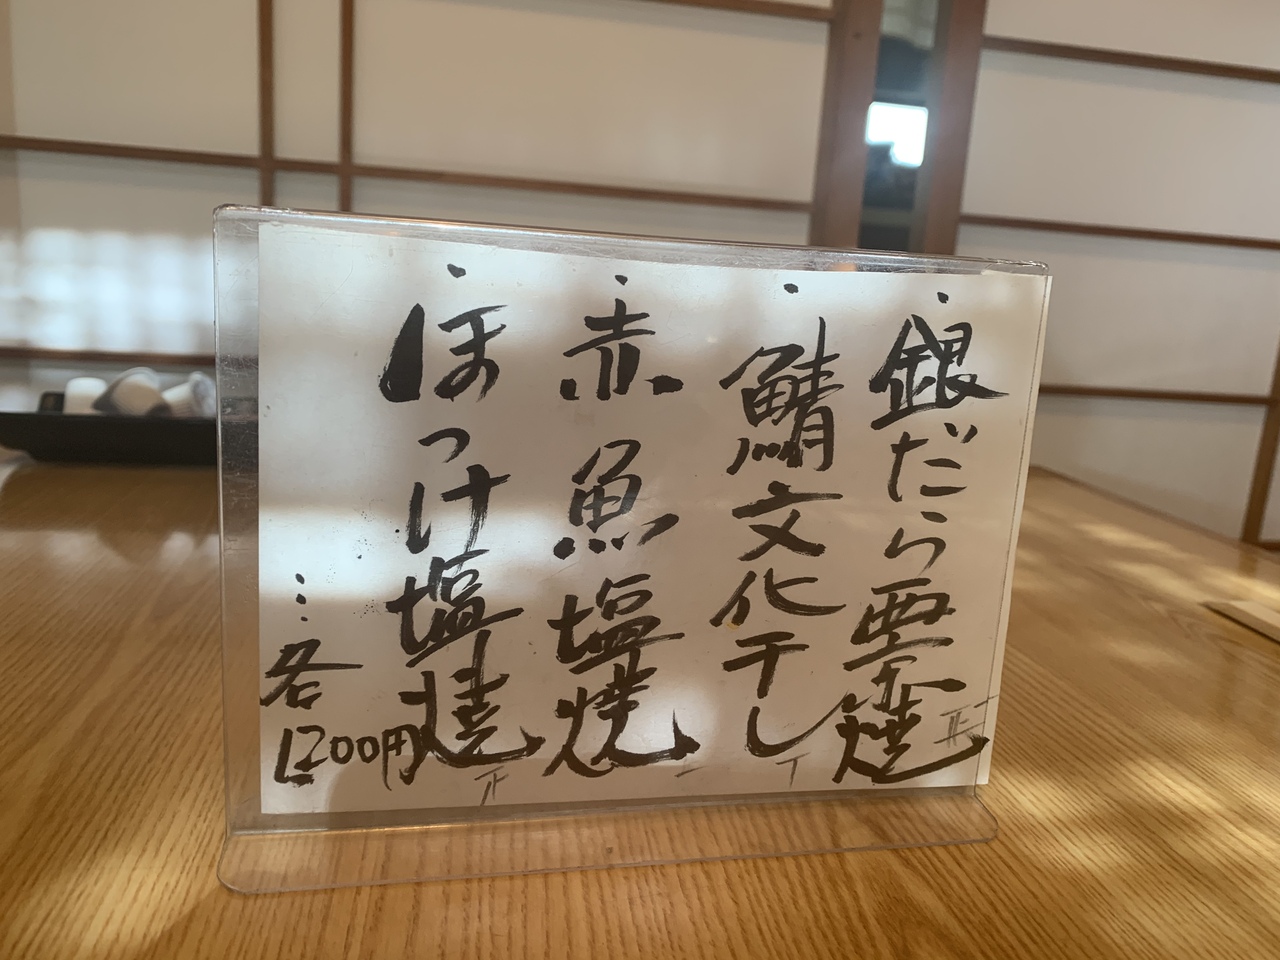 ・銀だら西京焼
・鯖文化干し
・赤魚塩焼
・ほっけ塩焼
…各1200円